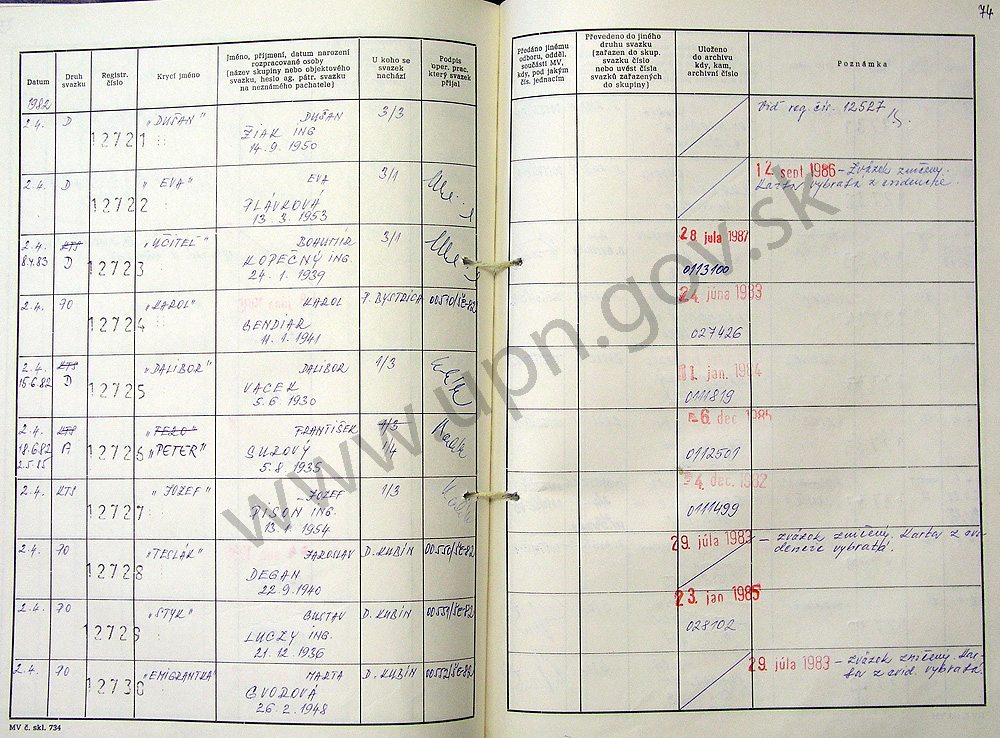 74
Datum
Druh svazku
Registr. číslo
Krycí jméno
Jméno, příjmení, datum narození
rozpracované osoby
(název skupiny nebo objektového
svazku, heslo ag. pátr. svazku
na neznámého pachatele)
U koho se
svazek
nachází
Podpis
oper. prac.
který svazek
přijal
Předáno jinému
odboru, odděl.
součásti MV,
kdy, pod jakým
čís. jednacím
Převedeno do jiného
druhu svazku
(zařazen do skup.
svazku číslo
nebo uvést čísla
svazků zařazených
do skupiny)
Uloženo
do archivu
kdy, kam,
archivní číslo
Poznámka
1982
2.4. D 12721 "DUŠAN" DUŠAN 3/3 Viď reg. čís. 12527
ŽIAK ING
14.9.1950
2.4. D 12722 "EVA" EVA 3/1 12 sept 1986 - Zväzok zničený.
PLÁVKOVÁ Karta vybratá z evidencie.
13.3.1953
2.4. KTS 12723 "UČITEĽ" BOHUMIR 3/1 28 júla 1987
8.4.83 D KOPECNÝ ING. 0113100
24.1.1939
2.4. 70 12724 "KAROL" KAROL P. BYSTRICA 00510/ŠE-82 24 júna 1983
BENDIAR 027426
11.1.1941
2.4. KTS 12725 "DALIBOR" DALIBOR 1/3 jan. 1984
15.6.82 D VACEK 0111819
5.6.1930
2.4. KTS 12726 "FERO" FRANTIŠEK 1/3 -6 dec 1985
18.6.82 A "PETER" SUROVÝ 1/4 0112501
2.5.85 5.8.1935
2.4. KTS 12727 "JOZEF" JOZEF 1/3 -4 dec. 1982
PISON ING. 0111499
1954
2.4. 70 12728 "TESLÁR" JAROSLAV D. KUBÍN 00550/ŠE-82 29. júla 1983 - Zväzok zničený. Karta z evi-
DEGAN dencie vybratá.
22.9.1940
2.4. 70 12729 "STYK" GUSTAV D. KUBÍN 00551/ŠE-82 23 jan 1985
LUCZY ING. 028102
21.12.1936
2.4. 70 12730 "EMIGRANTKA" MARTA D. KUBÍN 00552/ŠE-82 29. júla 1983 - Zväzok zničený. Kar-
GVOROVÁ z evid. vybratá.
26.2.1948
MV č. skl. 734
www.upn.gov.sk